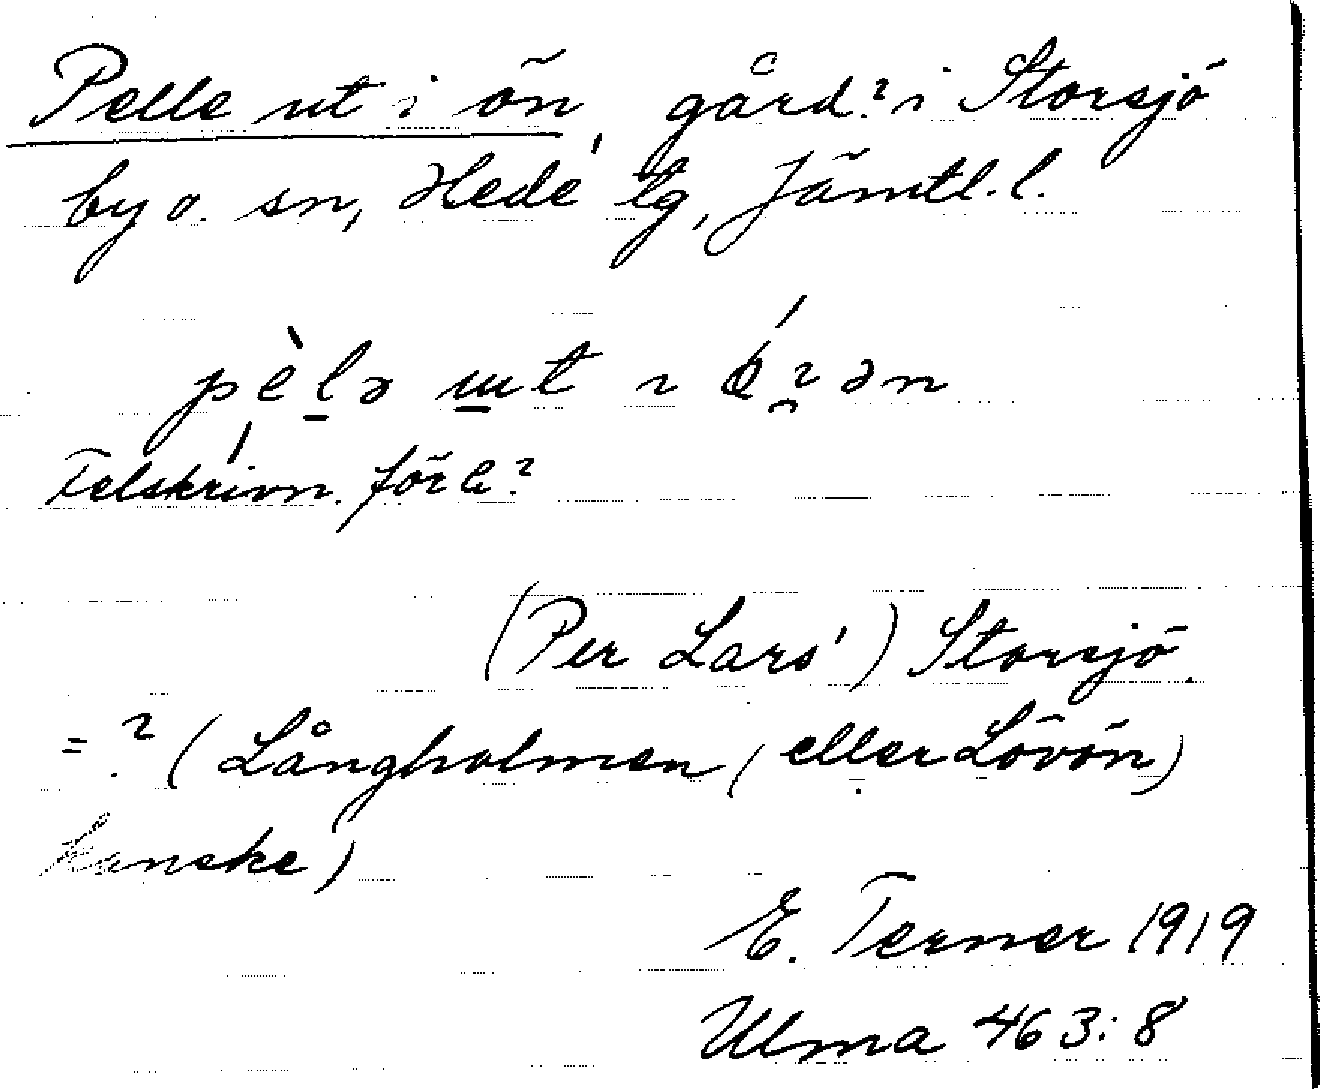 Pelle ut i ön, gård? i Storsjö
by o. sn, Hede tg, Jämtl. l.
pèlə ɯt ı ǿɂən
Felskrivn. för e?
(Per Lars') Storsjö
=? (Långholmen, (eller Lövön)
kanske)
E. Terner 1919
Ulma 463:8